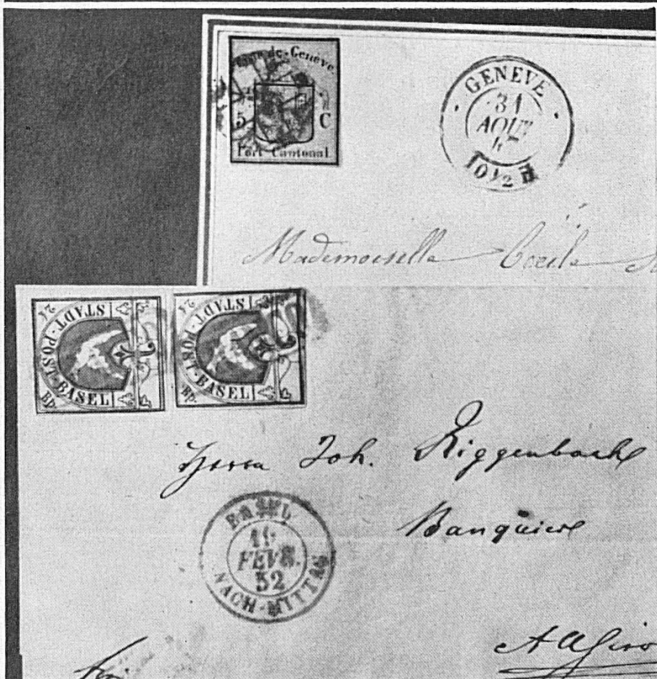 Poste de Genève
5 C
Port Cantonal
GENEVE
31
AOUT
10½
Mademoiselle Cécile
2½
STADT-POST-BASEL
Rp.
2½
STADT-POST-BASEL
Rp.
Herrn Joh. Riggenbach
Banquiers
BASEL
19
FEVR.
52
NACH-MITTAG